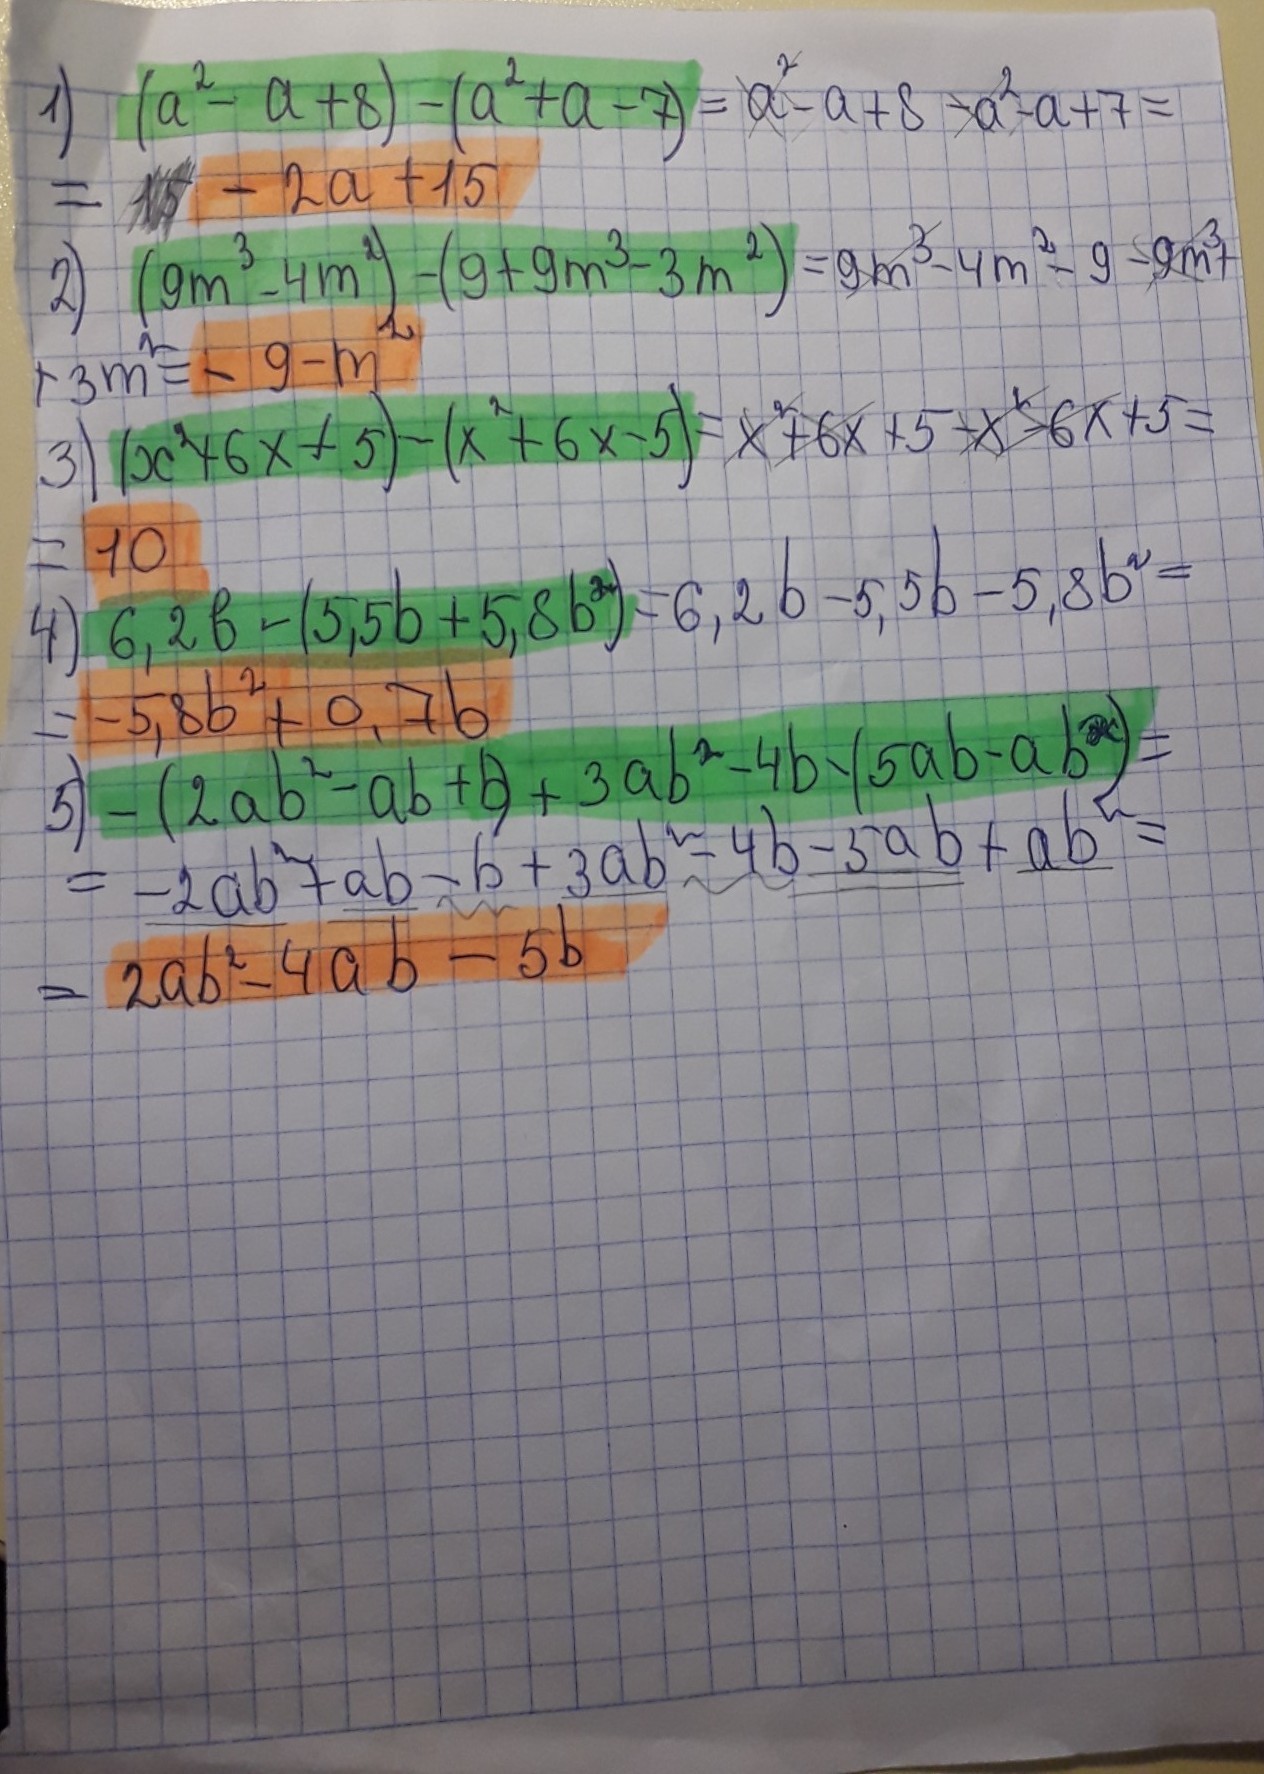 1) (a² - a + 8) - (a² + a - 7) = a² - a + 8 - a² - a + 7 =
= - 2a + 15
2) (9m³ - 4m²) - (9 + 9m³ - 3m²) = 9m³ - 4m² - 9 - 9m³ +
+ 3m² = - 9 - m²
3) (x² + 6x + 5) - (x² + 6x - 5) = x² + 6x + 5 - x² - 6x + 5 =
= 10
4) 6,2b - (5,5b + 5,8b²) = 6,2b - 5,5b - 5,8b² =
= -5,8b² + 0,7b
5) - (2ab² - ab + b) + 3ab² - 4b - (5ab - ab²) =
= -2ab² + ab - b + 3ab² - 4b - 5ab + ab² =
= 2ab² - 4ab - 5b